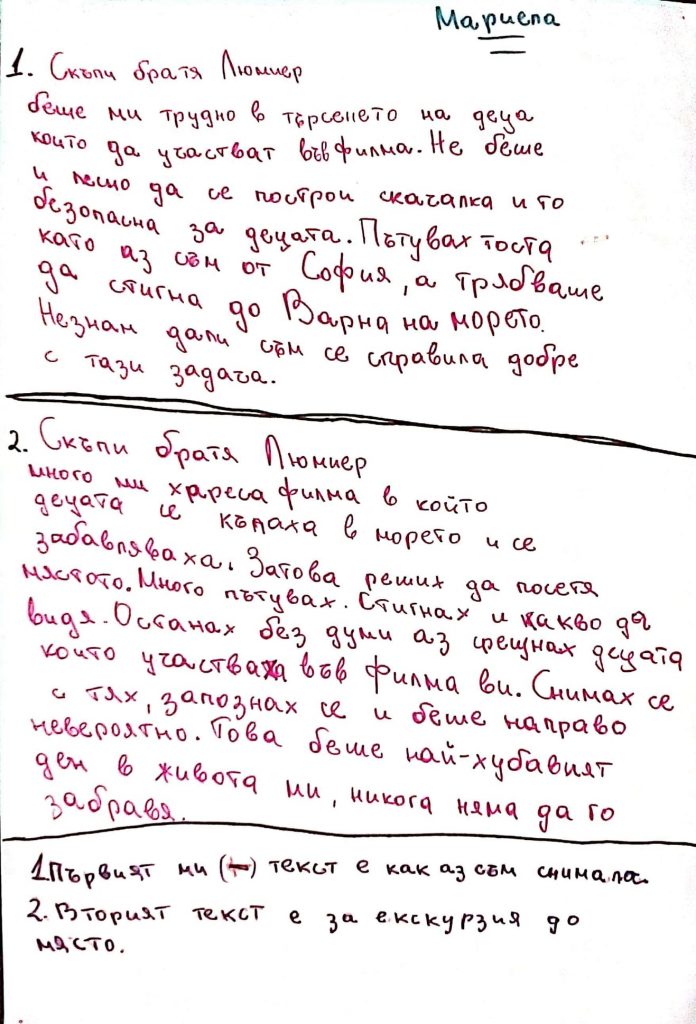 Мариела
1. Скъпи братя Люмиер
беше ми трудно в търсенето на деца
които да участват във филма. Не беше
и лесно да се построи скачалка и то
безопасна за децата. Пътувах тоста
като аз съм от София, а трябваше
да стигна до Варна на морето.
Незнам дали съм се справила добре
с тази задача.
2. Скъпи братя Люмиер
много ми хареса филма в който
децата се къпаха в морето и се
забавляваха. Затова реших да посетя
мястото. Много пътувах. Стигнах и какво да
видя. Останах без думи аз срещнах децата
които участваха във филма ви. Снимах се
с тях, запознах се и беше направо
невероятно. Това беше най-хубавият
ден в живота ми, никога няма да го
забравя.
1. Първият ми текст е как аз съм снимала.
2. Вторият текст е за екскурзия до
място.